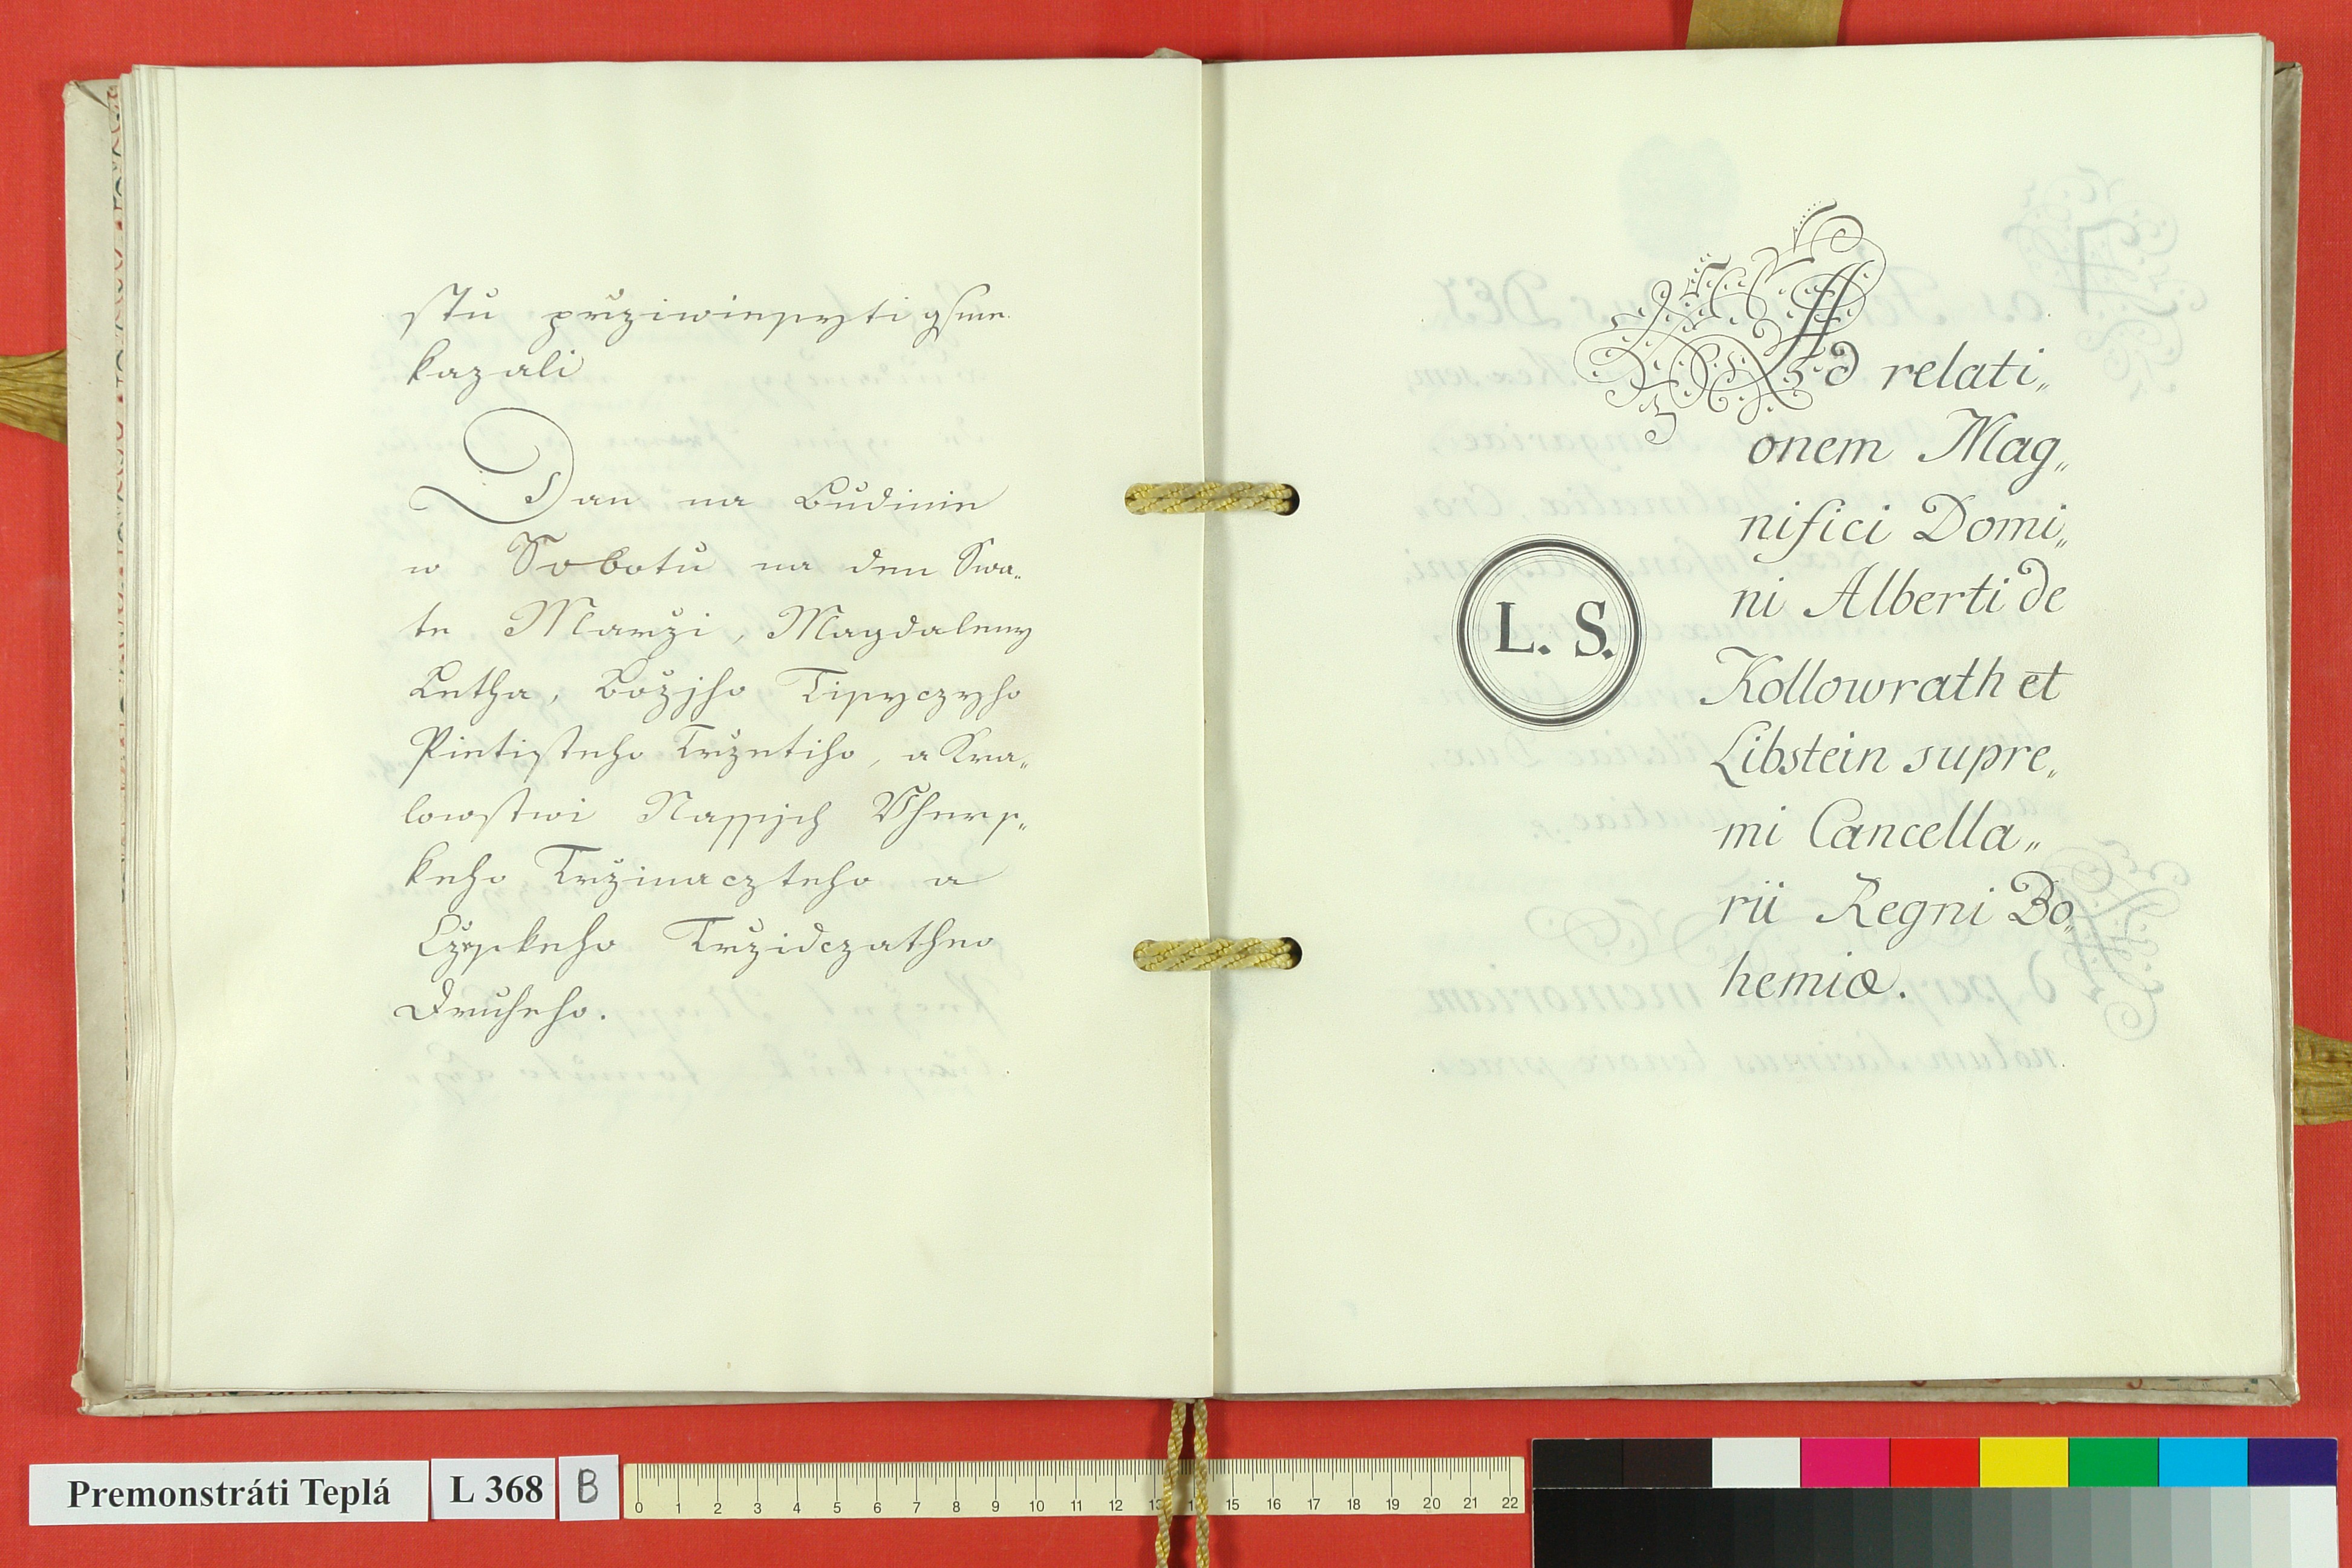 stu przziwiesyti gsme
kazali
Dan na Budinie
w Sobotu na den Swa„
te Marzi, Magdaleny
Letha, Božjho Tisyczyho
Pietisteho Trzetiho, a Kra„
lowstwi Nassych Uhers„
keho Trzinaczteho a
Czeskeho Trzidczatheo
Druheho.
Ad relati„
onem Mag„
nifici Domi„
ni Alberti de
Kollowrath et
Libstein supre„
mi Cancella„
rii Regni Bo„
hemiæ.
L. S.
Premonstráti Teplá
L 368
B
0 1 2 3 4 5 6 7 8 9 10 11 12 13 14 15 16 17 18 19 20 21 22